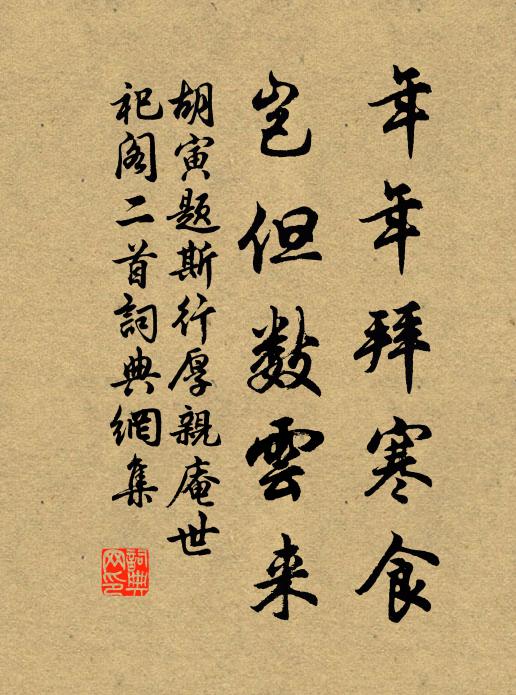 年年拜寒食
岂但数雲来
胡寅题斯行厚親庵世
祀阁二首詞典網集
詞典网印